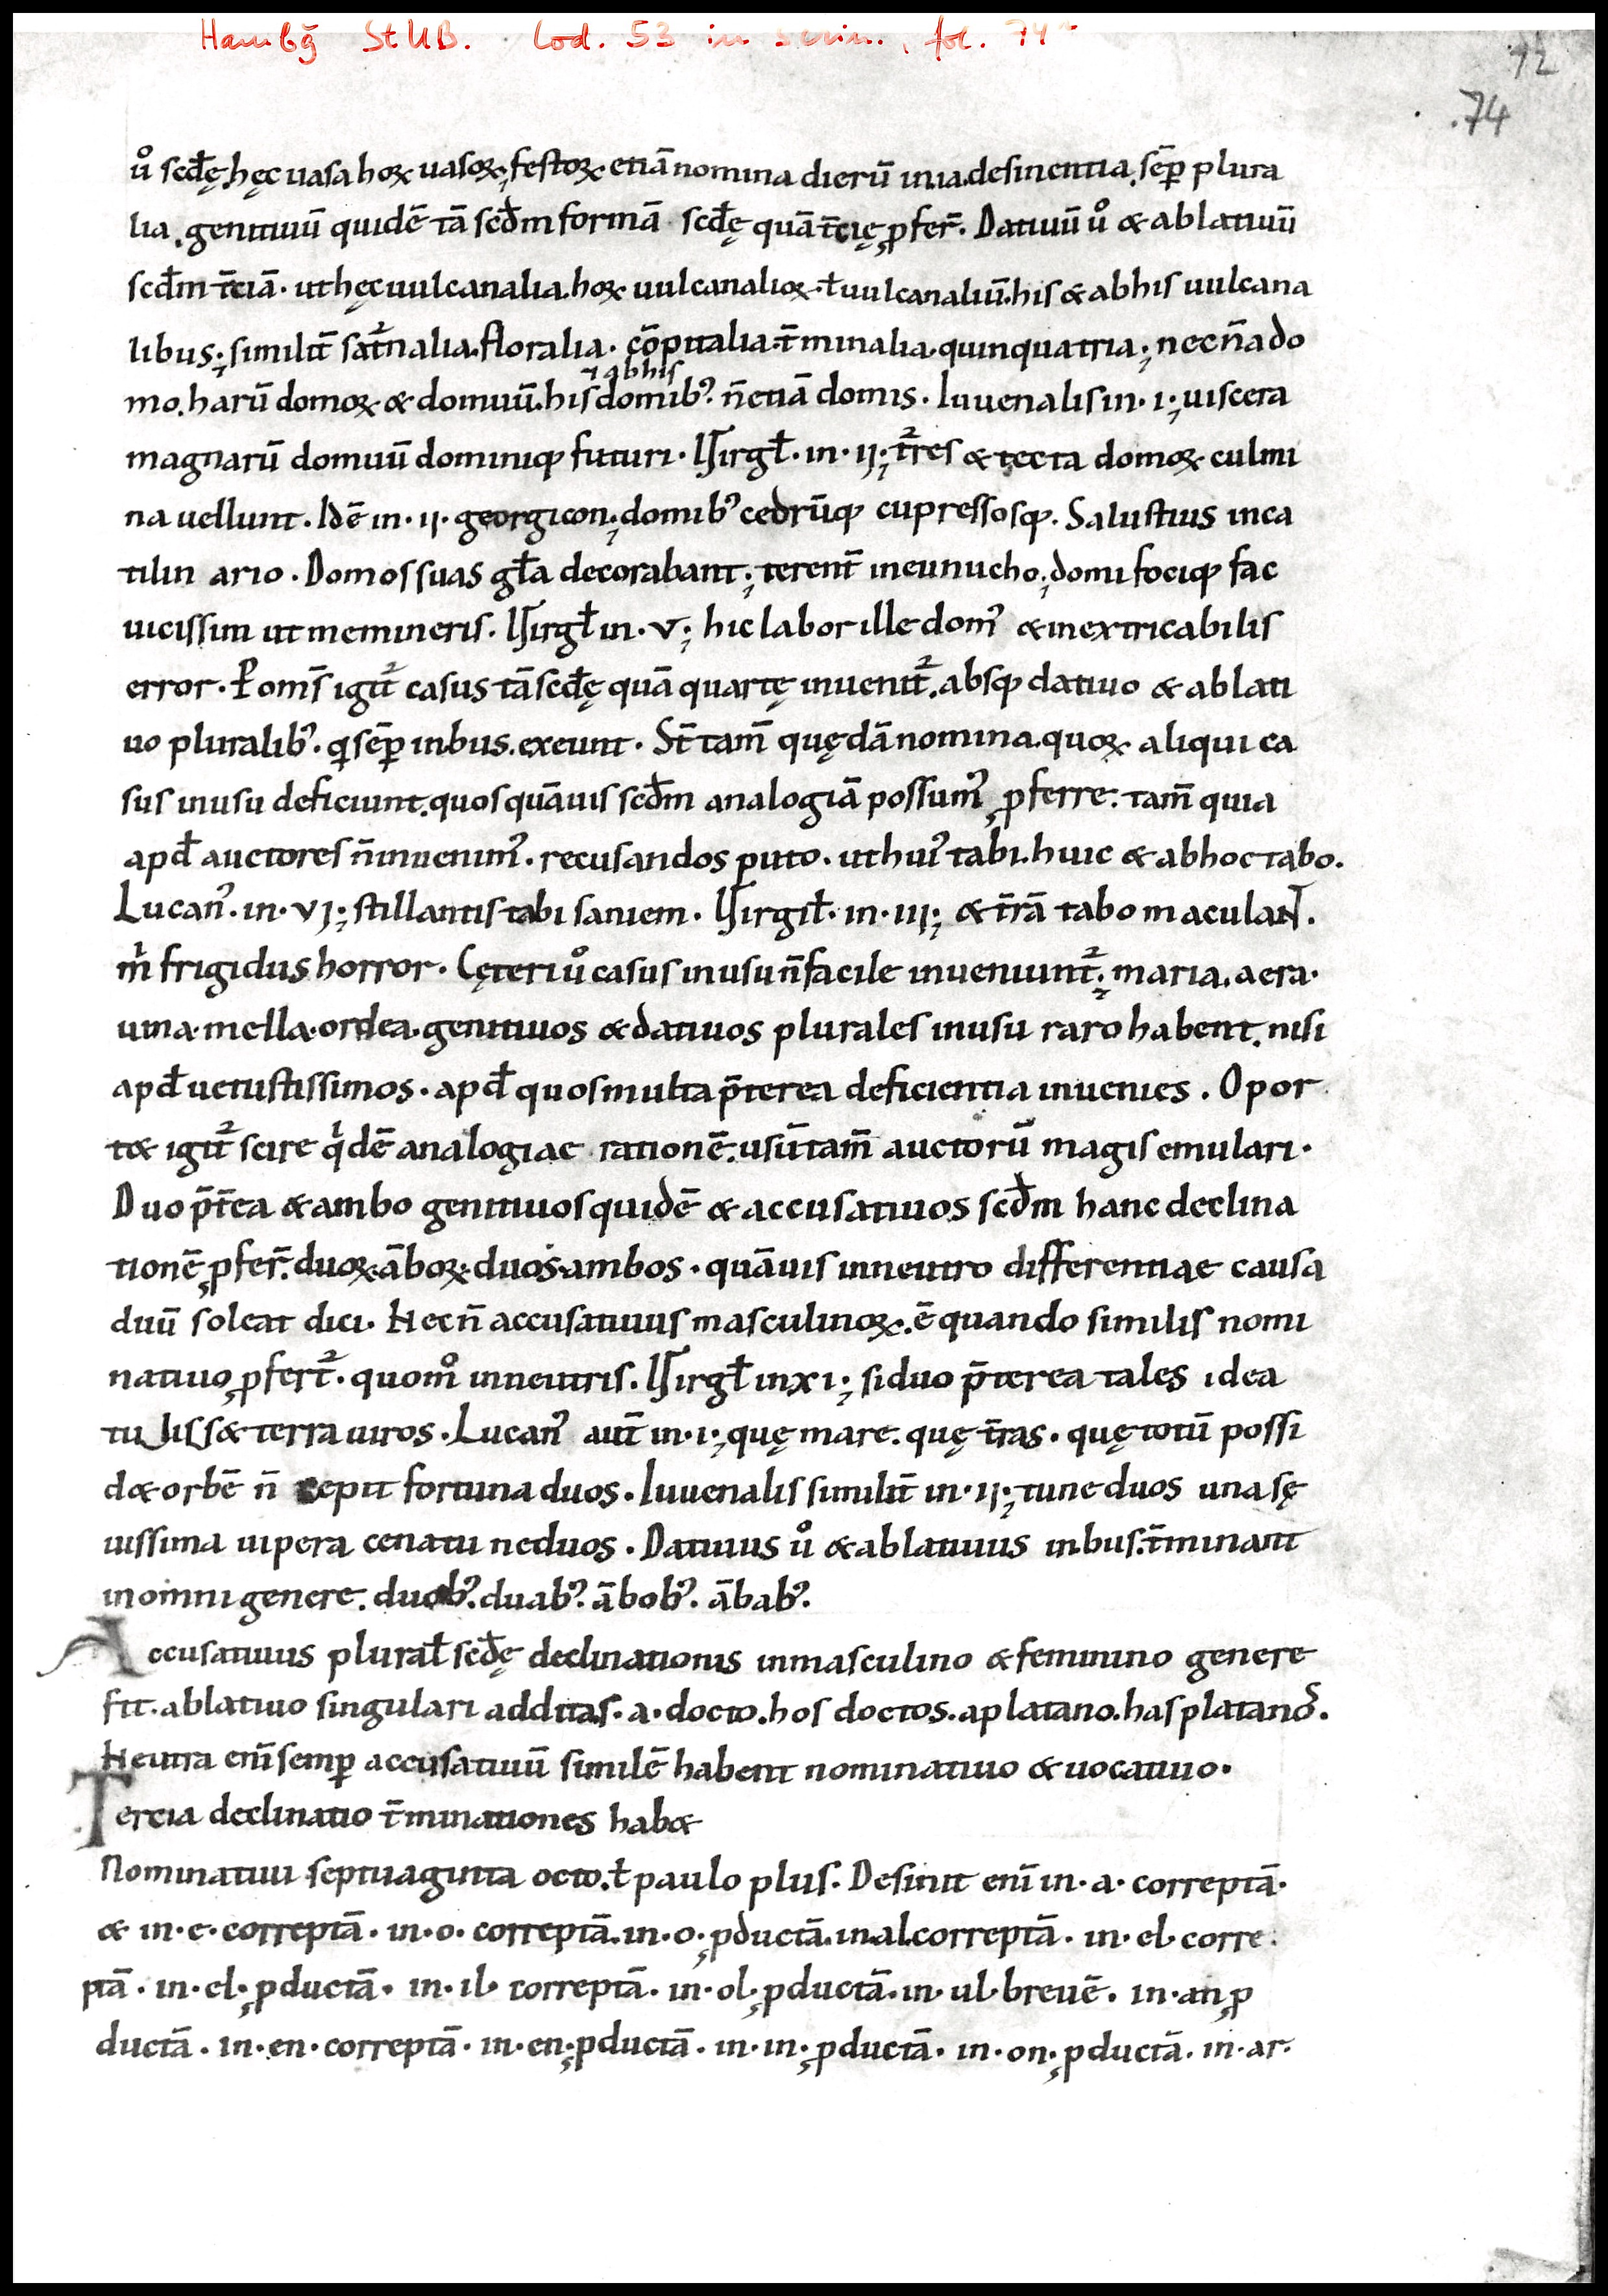 Hambg̃ StUB. Cod. 53 in scrin., fol. 74ʳ
72
.74
uͦ scđę. hęc uasa hoꝝ uasoꝝ; festoꝝ etiā nomina dierū in ia. desinentia. sēꝑ plura
lia. genitiuū quidē tā scđm formā scđę quā t̄cię ꝓfer̄. Datiuū uͦ & ablatiuū
scđm t̄ciā. ut hęc uulcanalia. hoꝝ uulcanalioꝝ ł uulcanaliū. his & ab his uulcana
libus; similit̄ sat̄nalia. floralia. cōpitalia. t̄minalia. quinquatria; nec n̄ a do
⁊ ab his
mo. harū domoꝝ & domuū. his domib᾿. n̄ etiā domis. Iuuenalis in .i.; uiscera
magnarū domuū dominiqꝫ futuri. Uirgł. in .ii.; t̄res & tecta domoꝝ culmi
na uellunt. Idē in .ii. georgicon; domib᾿ cedrūqꝫ cupressosqꝫ. Salustius in ca
tilin ario. Domos suas gła decorabant; terent̄ in eunucho; domi fociqꝫ fac
uicissim ut memineris. Uirgł in .v.; hic labor ille dom᾿ & inextricabilis
error. P om̄s igit̄ casus tā scđę quā quartę inuenit̄. absqꝫ datiuo & ablati
uo pluralib᾿. qui sēꝑ in bus. exeunt. St̄ tam̄ quędā nomina. quoꝝ aliqui ca
sus in usu deficiunt. quos quāuis scđm analogiā possum᾿ ꝓferre. tam̄ quia
apđ auctores n̄ inuenim᾿. recusandos puto. ut hui᾿ tabi. huic & ab hoc tabo.
Lucan᾿. in .vi.; stillantis tabi saniem. Uirgił. in .iii.; & t̄rā tabo maculaNT.
m̍ frigidus horror. Cęteri uͦ casus in usu n̄ facile inueniunt̄; maria. aera.
uina. mella. ordea. genitiuos & datiuos plurales in usu raro habent. nisi
apđ uetustissimos. apđ quos multa p̄terea deficientia inuenies. Opor
t& igit̄ scire q̍dē analogiae rationē. usū tam̄ auctorū magis emulari.
Duo p̄t̄ea & ambo genitiuos quidē & accusatiuos scđm hanc declina
tionē ꝓfer̄. duoꝝ. āboꝝ. duos. ambos. quāuis in neutro differentiae causa
duū soleat dici. Nec n̄ accusatiuus masculinoꝝ. ē quando similis nomi
natiuo ꝓfert̄. quom̊ in neutris. Uirgł in xi.; si duo p̄terea tales idea
tulis s& terra uiros. Lucan᾿ aut̄ in .i.; quę mare. quę t̄ras. quę totū possi
d& orbē n̄ cepit fortuna duos. Iuuenalis similit̄ in .ii.; tune duos una sę
uissima uipera cenatu ne duos. Datiuus uͦ & ablatiuus in bus. t̄minant
in omni genere. duob᾿. duab᾿. ābob᾿. ābab᾿.
Accusatiuus plurał scđę declinationis in masculino & feminino genere
fit. ablatiuo singulari addita .s. a. docto. hos doctos. a platano. has platanos.
Neutra enī semꝑ accusatiuū similē habent nominatiuo & uocatiuo.
Tercia declinatio t̄minationes hab&
Nominatiui septuaginta octo. ł paulo plus. Desinit enī in .a. correptā.
& in .e. correptā. in .o. correptā. in .o. ꝓductā. in al. correptā. in .el. corre
ptā. in .el. ꝓductā. in .il. correptā. in .ol. ꝓductā. in .ul. breuē. in .an. ꝓ
ductā. in .en. correptā. in .en. ꝓductā. in .in. ꝓductā. in .on. ꝓductā. in .ar.